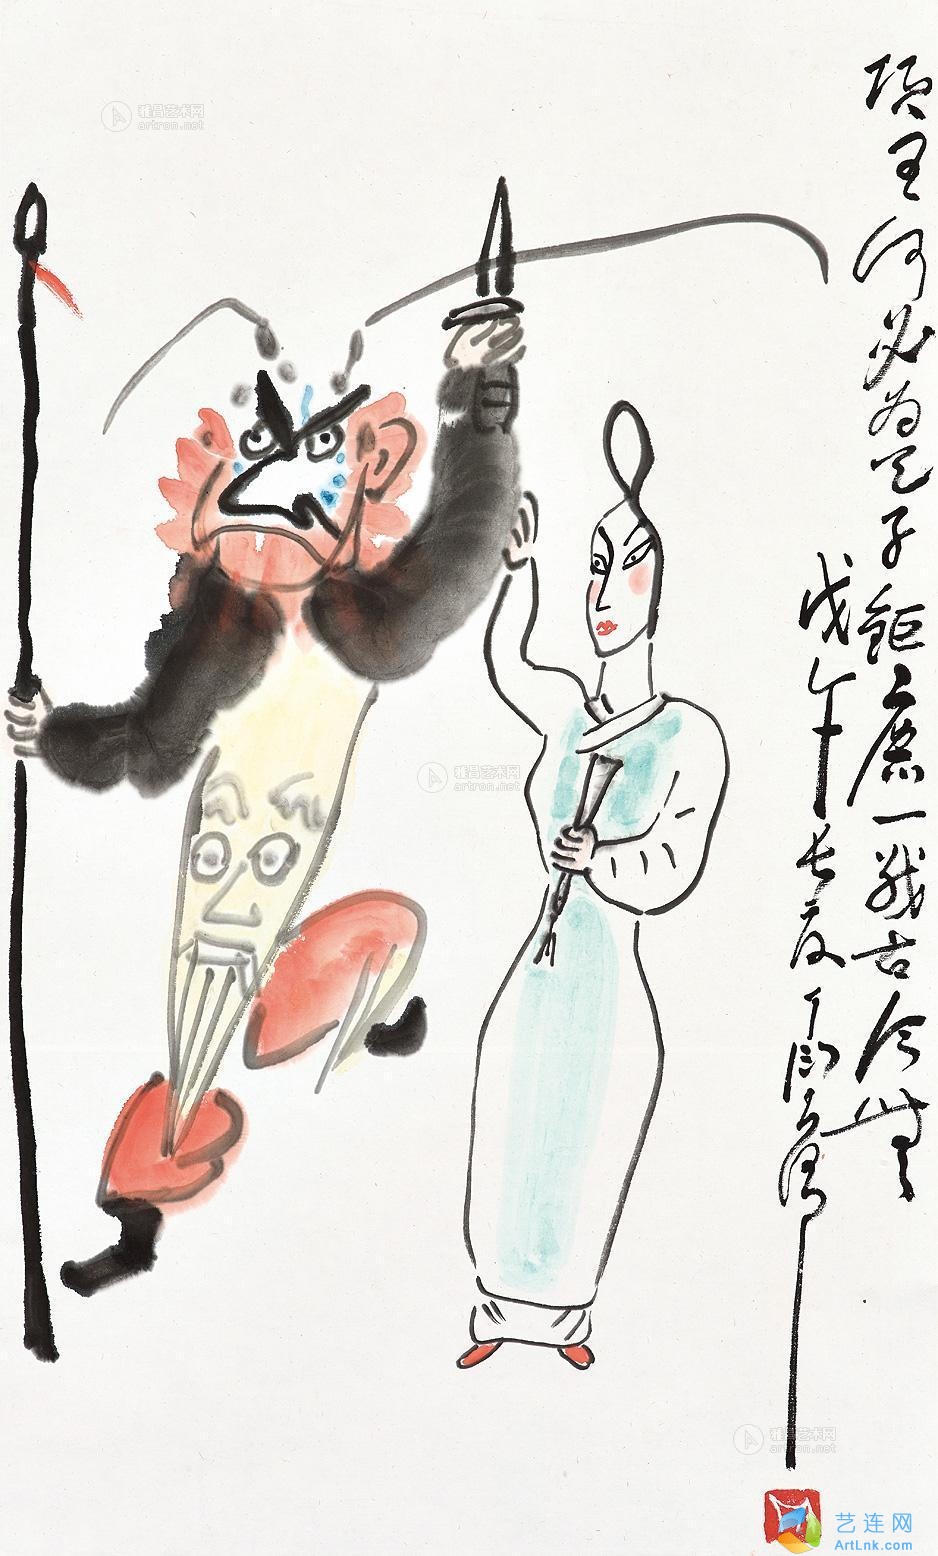 项王何必为天子
钜鹿一战古今无
戊午长夏丁衍庸
雅昌艺术网
artron.net
雅昌艺术网
artron.net
雅昌艺术网
artron.net
艺连网
ArtLnk.com